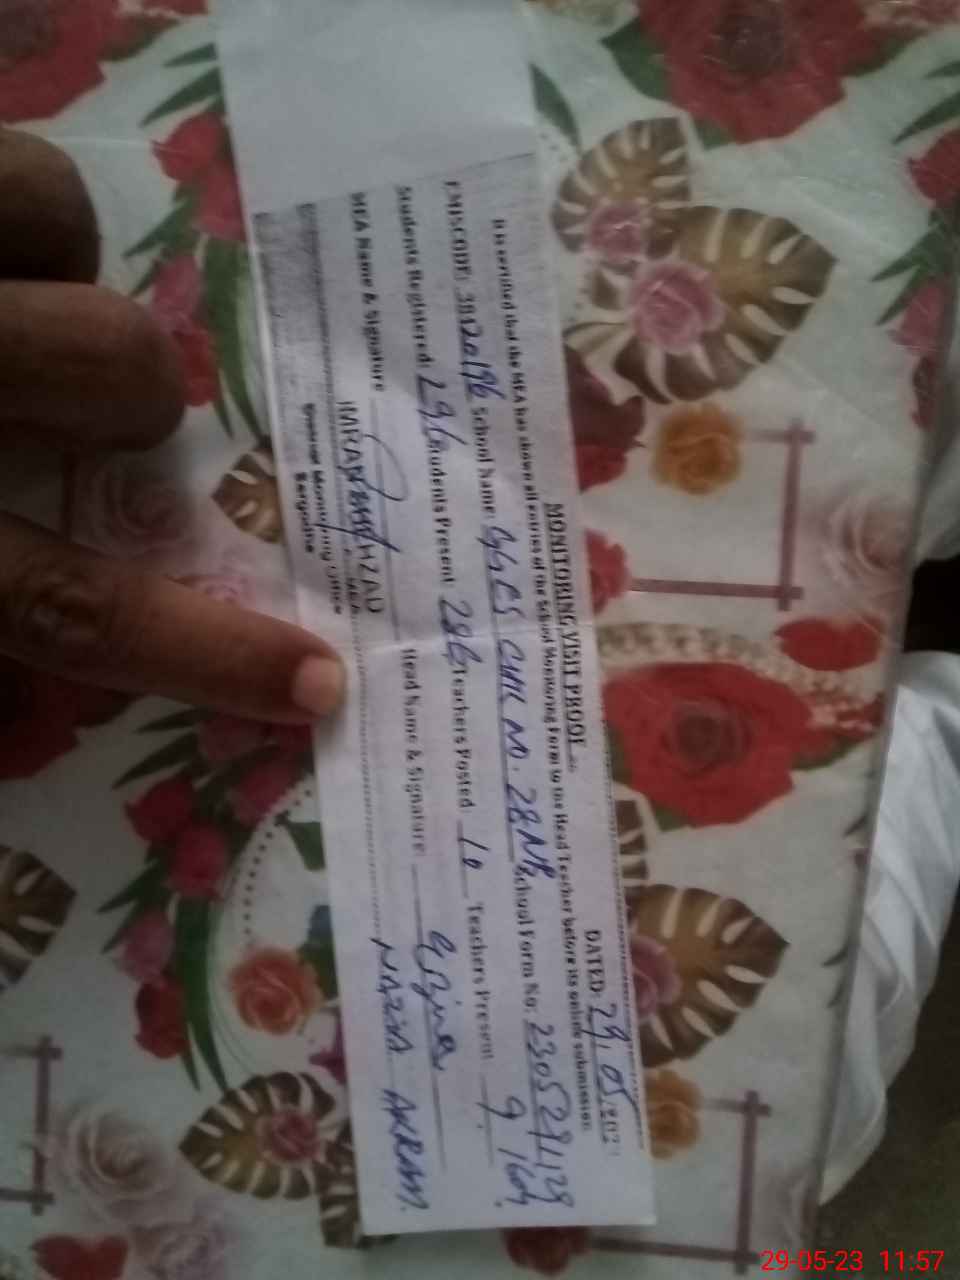 MONITORING VISIT PROOF
DATED: 29.05.202
It is certified that the MEA has shown all entries of the School Monitoring Form to the Head Teacher before its online submission.
EMISCODE: 38420196 School Name: GGES CHK NO. 28NB School Form No:
Students Registered: 296 Students Present: 286 Teachers Posted: 10 Teachers Present: 9
MEA Name & Signature Head Name & Signature:
IMRAN SHEHZAD NAZIA AKRAM
MEA
District Monitoring Office
Sargodha
29-05-23 11:57